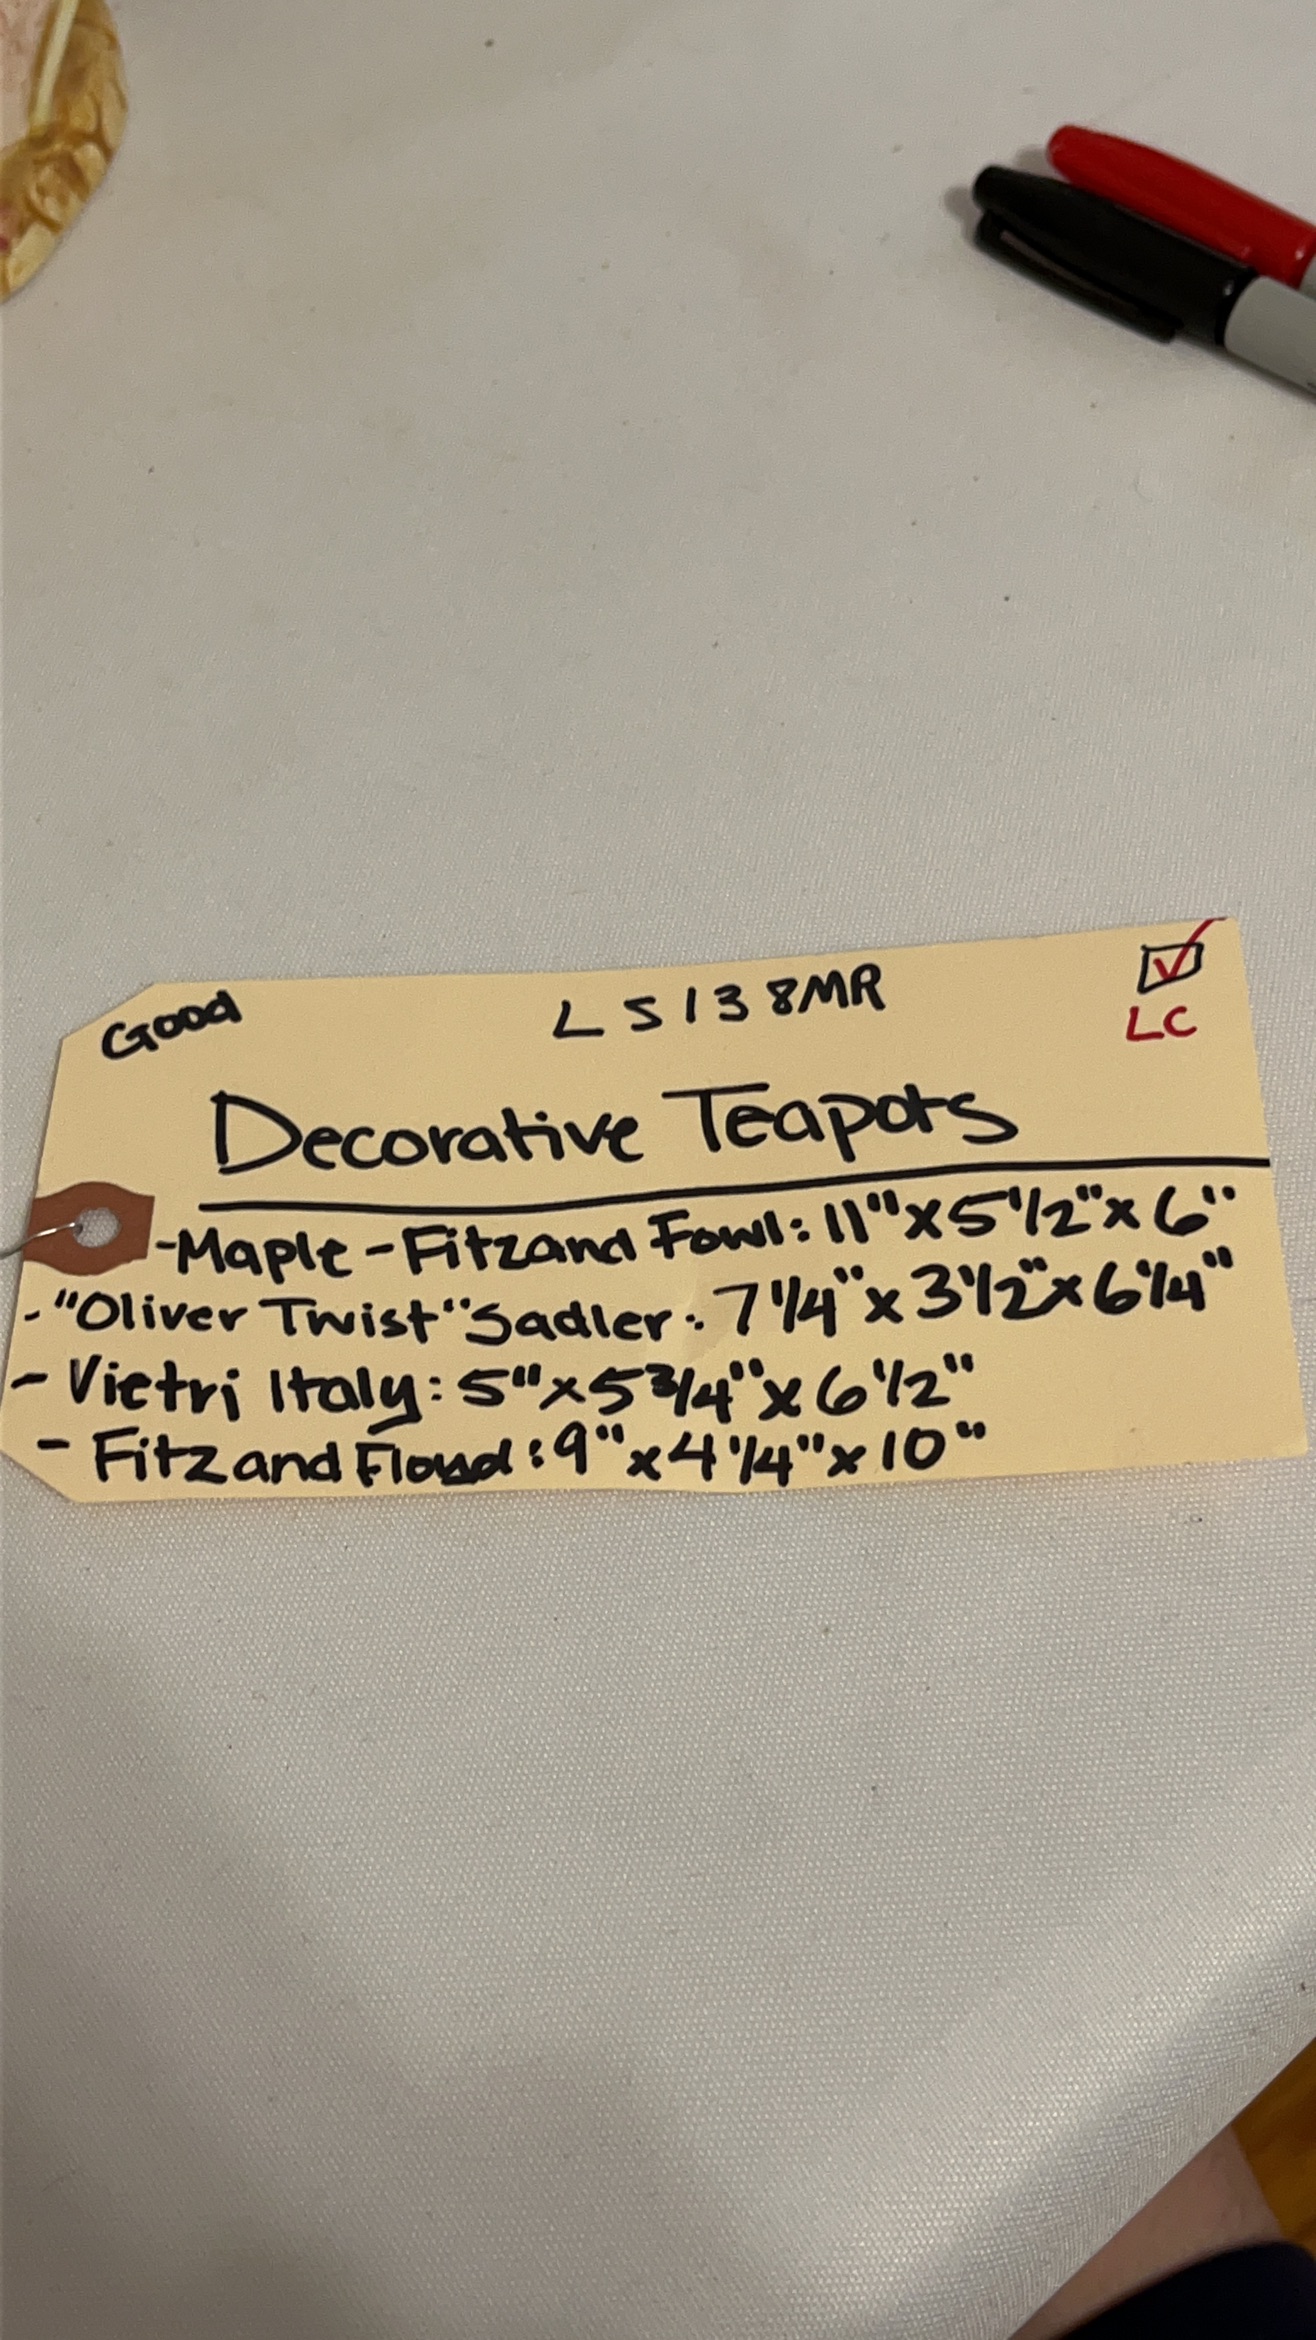 Good LS138MR ☑
LC
Decorative Teapots
-Maple-Fitzand Fowl: 11"x5 1/2"x6"
-"Oliver Twist" Sadler: 7 1/4"x3 1/2"x6 1/4"
- Vietri Italy: 5"x5 3/4"x6 1/2"
- Fitzand Floyd: 9"x4 1/4"x10"